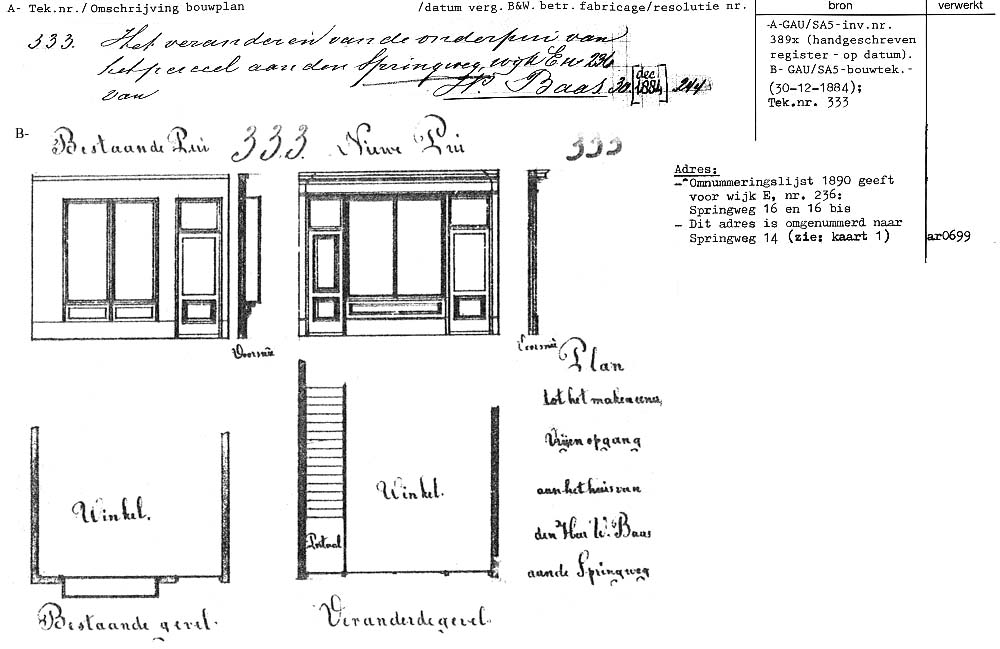 A- Tek.nr./Omschrijving bouwplan /datum verg. B&W. betr. fabricage/resolutie nr. bron verwerkt
333. Het veranderen van de onderpui van
het perceel aan den Springweg, wyk E no 236
van Baas 30 [dec 1884] 244
-A-GAU/SA5-inv.nr.
389x (handgeschreven
register - op datum).
B- GAU/SA5-bouwtek.-
(30-12-1884);
Tek.nr. 333
B- Bestaande Pui 333. Nieuwe Pui 333
Adres:
- Omnummeringslijst 1890 geeft
voor wijk E, nr. 236:
Springweg 16 en 16 bis
- Dit adres is omgenummerd naar
Springweg 14 (zie: kaart 1) ar0699
Doorsnee
Doorsnee
Plan
tot het maken eener
Vrijen opgang
aan het huis van
den Heer W. Baas
aan de Springweg
Winkel.
Winkel.
Portaal
Bestaande gevel.
Veranderde gevel.